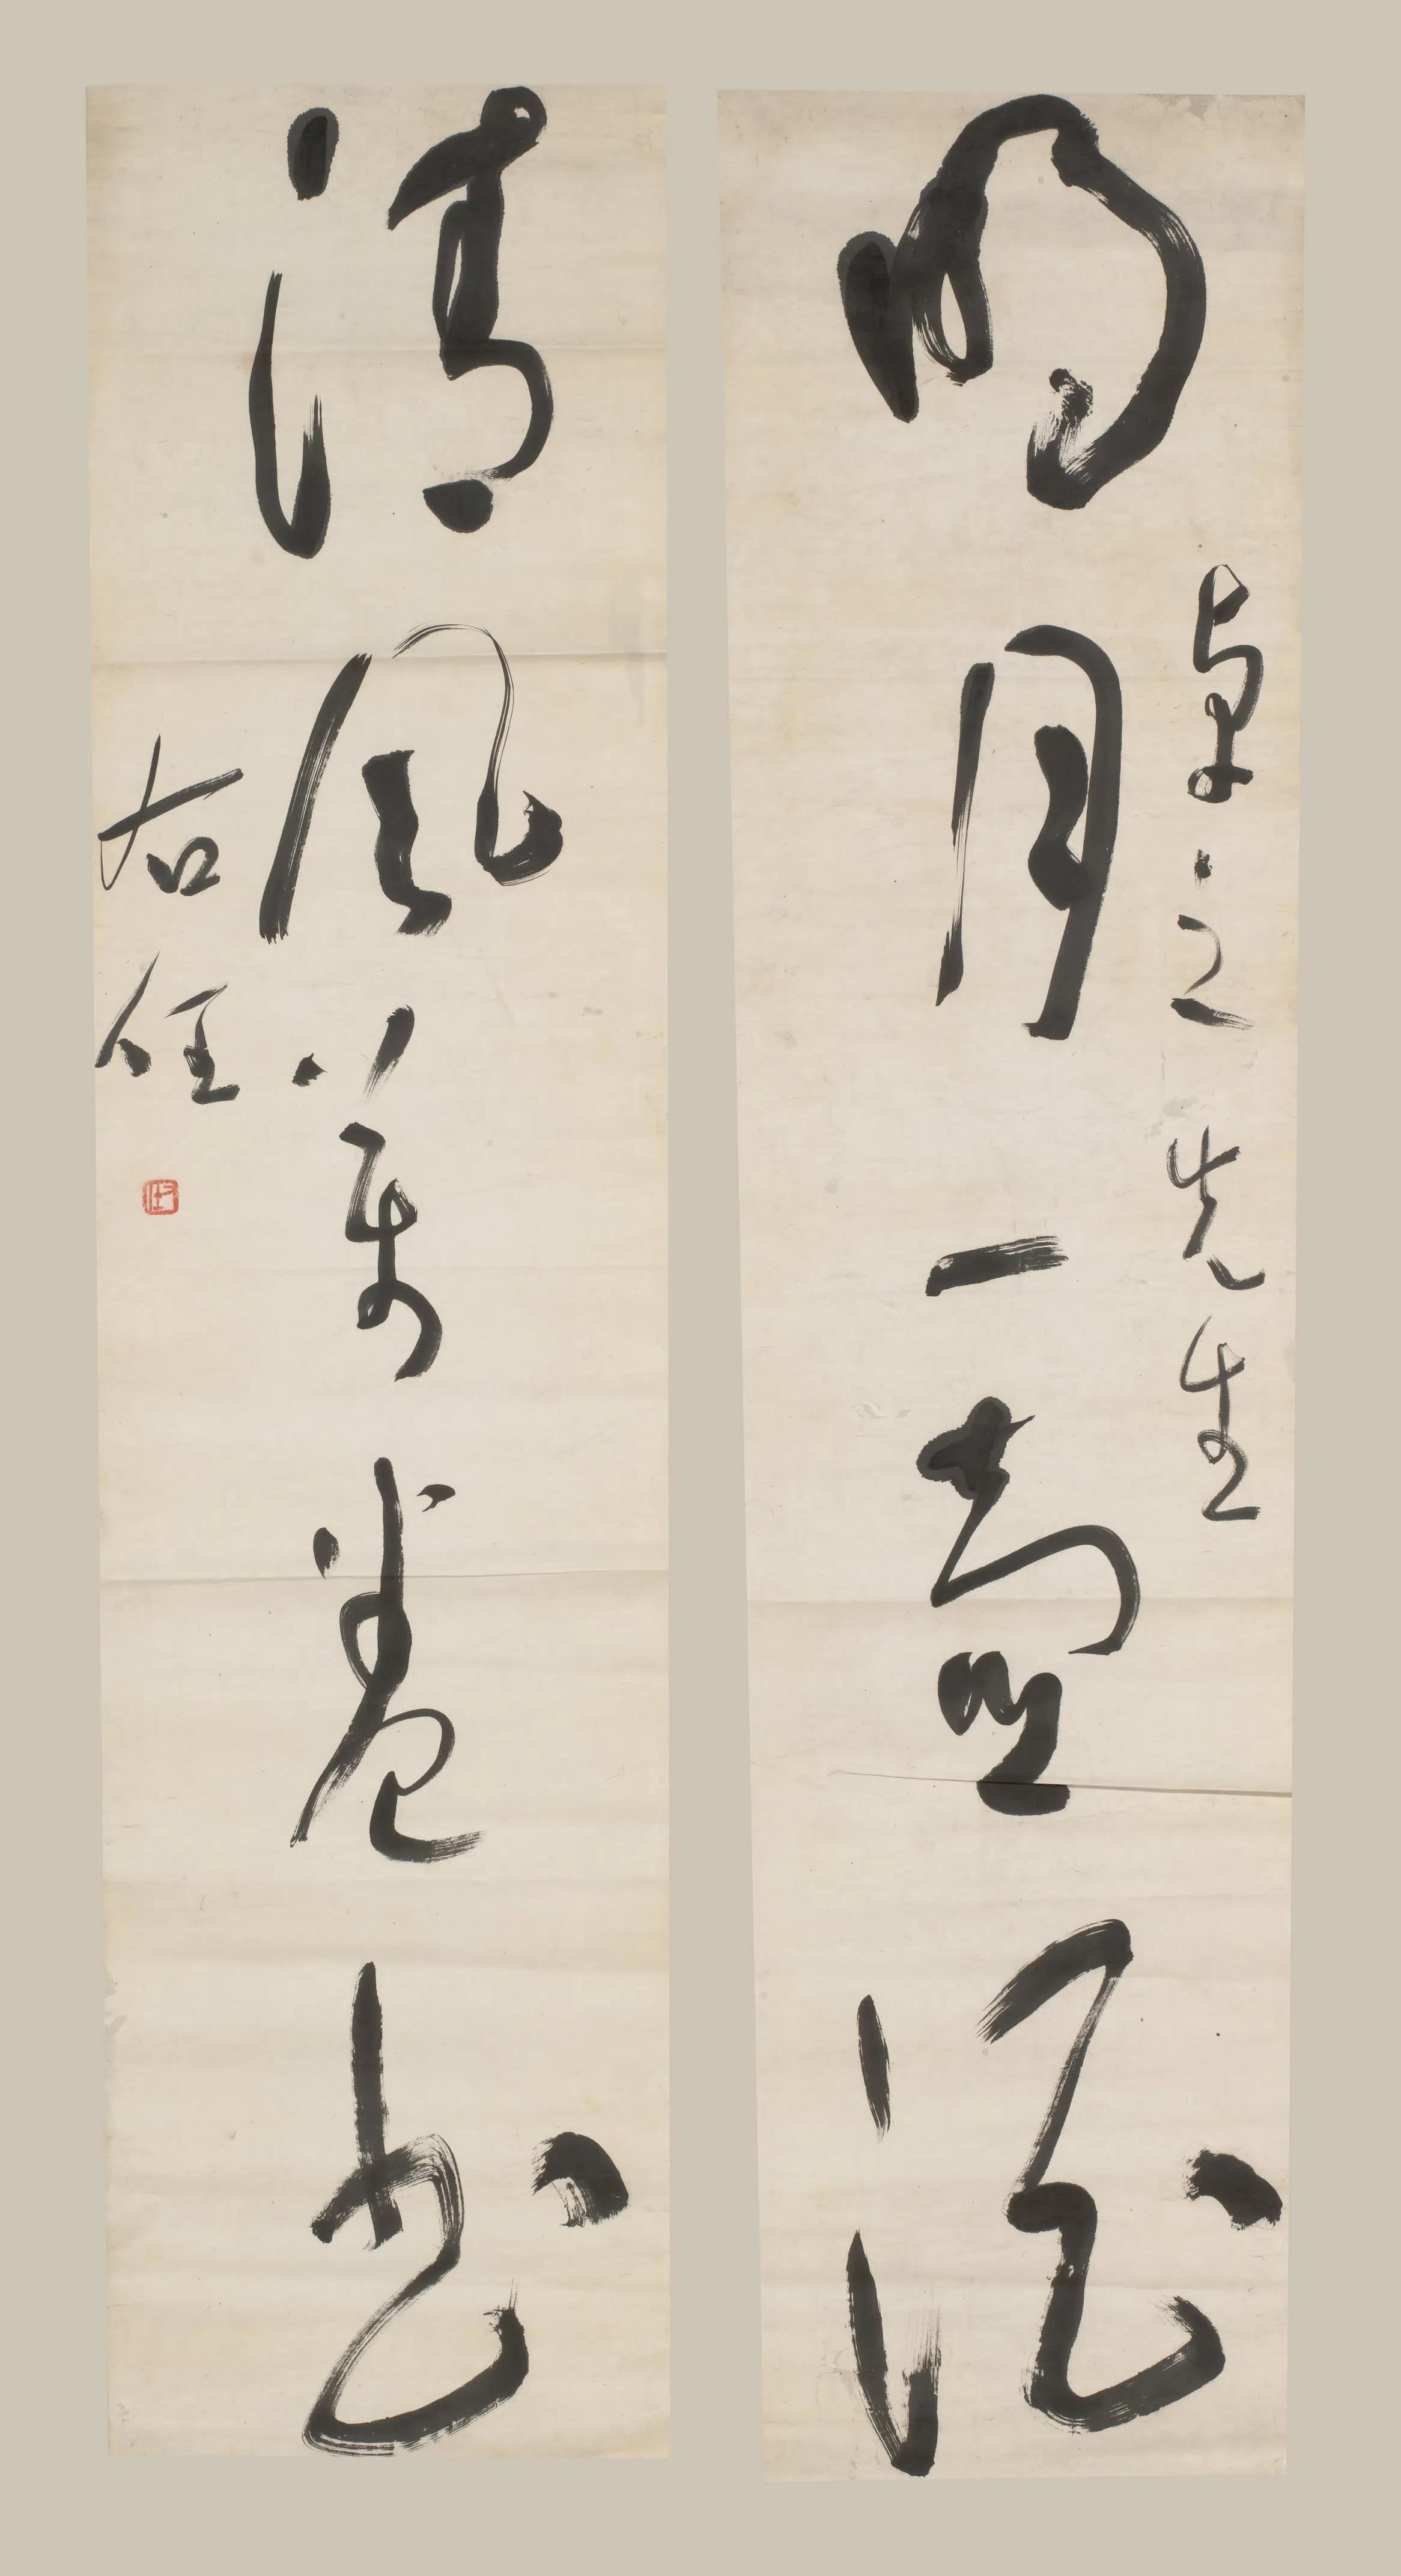 卓之先生
明月一壺酒
清風萬卷書
右任
右任